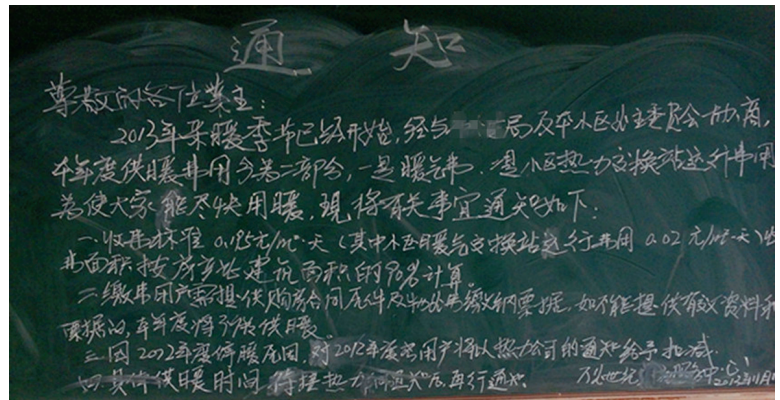 通知
尊敬的各位业主:
2013年采暖季节已经开始,经与局及本小区业主委员会协商,
本年度供暖费用分为二部分,一是暖气费,二是小区热力交换站运行费用
为使大家能尽快用暖,现将有关事宜通知如下:
一.收费标准0.195元/m²·天(其中小区暖气交换站运行费用0.02元/m²·天)
费面积按房产证建筑面积的90%计算。
二.缴费用户需提供购房合同原件及物业费缴纳票据,如不能提供有效资料和
票据的,本年度将不供暖。
三.因2012年度停暖原因,对2012年度用户将以热力公司的通知给予扣减.
四.具体供暖时间,待接热力公司通知后再行通知.